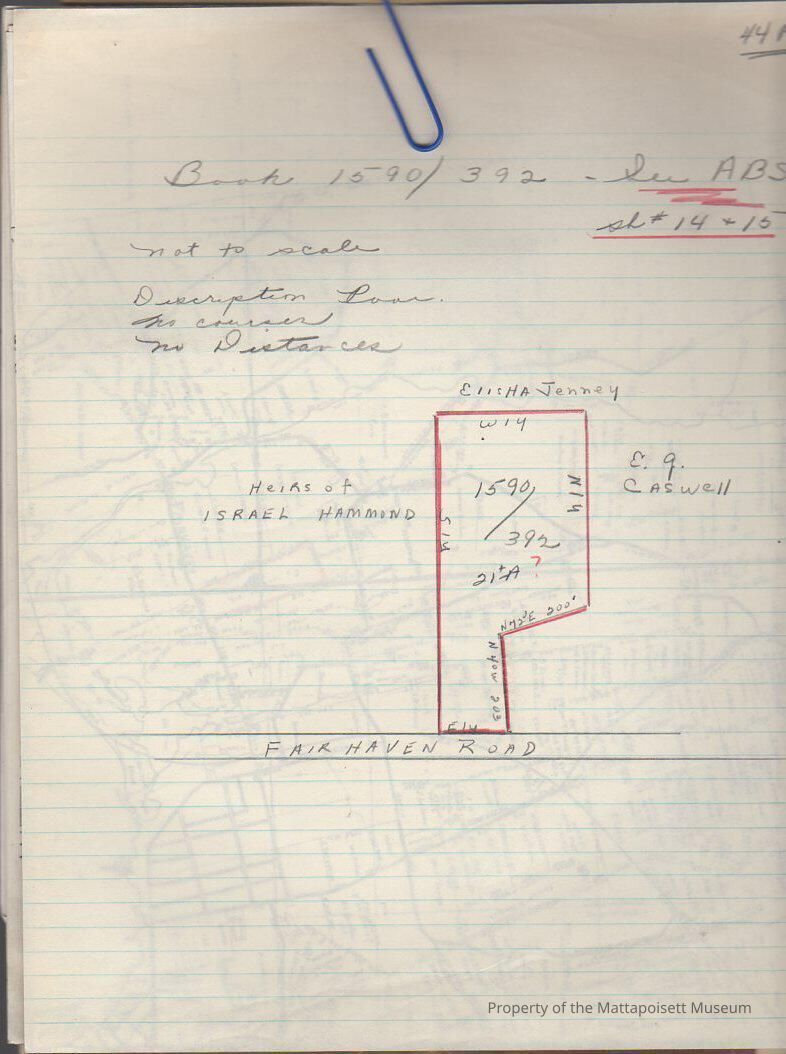 44
Book 1590/392 - See ABS
sh # 14 + 15
not to scale
Discription Poor.
no courses
no Distances
ElisHA Jenney
Wly
E. G.
CASWell
HeiRs of
ISRAEL HAMMOND
Sly
1590/
392
Nly
21±A ?
N72°E 200'
N40W 203
Ely
FAIRHAVEN ROAD
Property of the Mattapoisett Museum